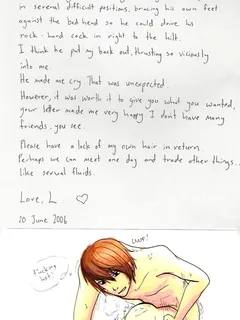 in several difficult positions, bracing his own feet
against the bed head so he could drive his
rock-hard cock in right to the hilt.
I think he put my back out, thrusting so viciously
into me.
He made me cry. That was unexpected.
However, it was worth it to give you what you wanted,
your letter made me very happy. I don't have many
friends, you see.
Please have a lock of my own hair in return.
Perhaps we can meet one day and trade other things,
like sexual fluids.
Love, L ♡
20 June 2006
UNNF!
Fucking hot!